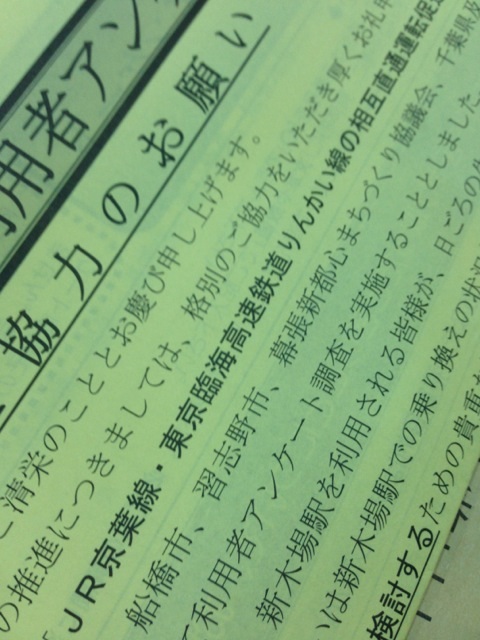 用者アン
協力のお願い
清栄のこととお慶び申し上げます。
の推進につきましては、格別のご協力をいただき厚くお礼申
「JR京葉線・東京臨海高速鉄道りんかい線の相互直通運転促進
船橋市、習志野市、幕張新都心まちづくり協議会、千葉県及
て利用者アンケート調査を実施することとしました。
新木場駅を利用される皆様が、日ごろの
いは新木場駅での乗り換えの状況
検討するための貴重